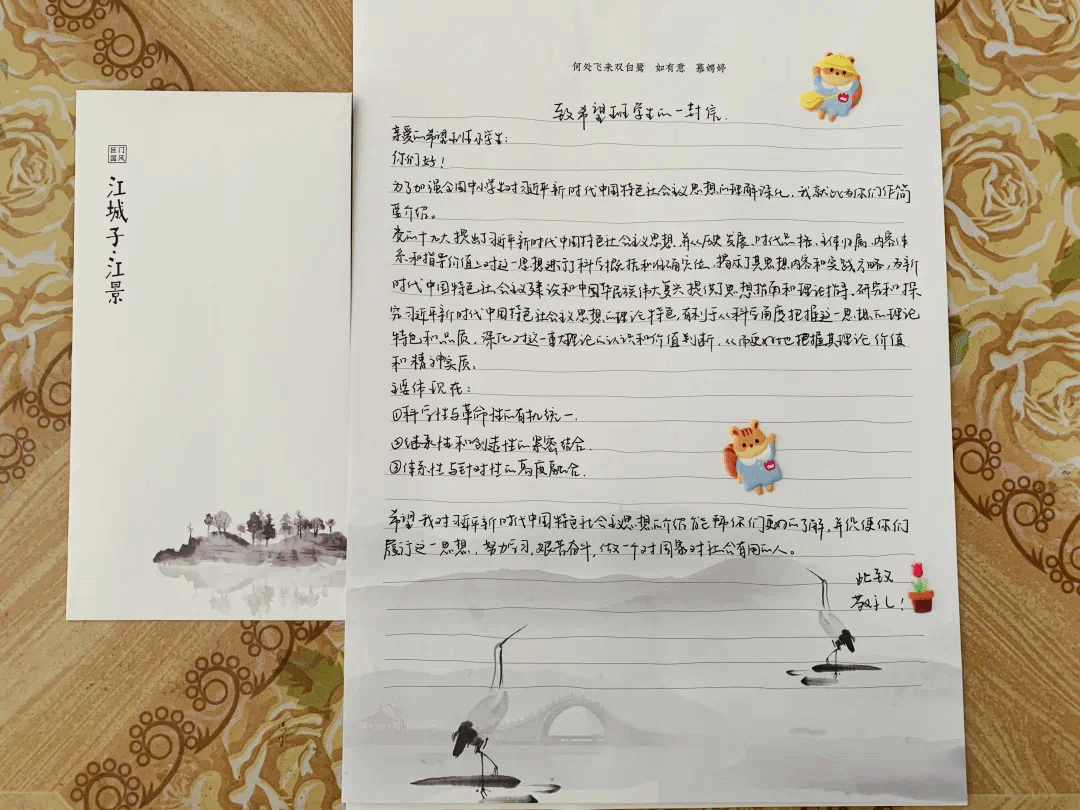 國巨
風門
江城子·江景
何处飞来双白鹭 如有意 慕娉婷
致希望班学生的一封信.
亲爱的希望班小学生:
你们好!
为了加强全国中小学生对习近平新时代中国特色社会主义思想的理解深化,我就此为你们作简
要介绍。
党的十九大提出了习近平新时代中国特色社会主义思想,并从历史发展、时代品格、主体归属、内容体
系和指导价值上对这一思想进行了科学概括和明确定位,揭示了其思想内容和实践方略,为新
时代中国特色社会主义建设和中国华民族伟大复兴提供了思想指南和理论指导.研究和探
究习近平新时代中国特色社会主义思想的理论特色,有利于从科学角度把握这一思想的理论
特色和品质,深化对这一重大理论的认识和价值判断,从而更好地把握其理论价值
和精神实质.
主要体现在:
①科学性与革命性的有机统一.
②继承性和创造性的紧密结合.
③体系性与针对性的高度融合.
希望我对习近平新时代中国特色社会主义思想的介绍能帮你们更好的了解,并促使你们
履行这一思想.努力学习,艰苦奋斗,做一个对国家对社会有用的人。
此致
敬礼!